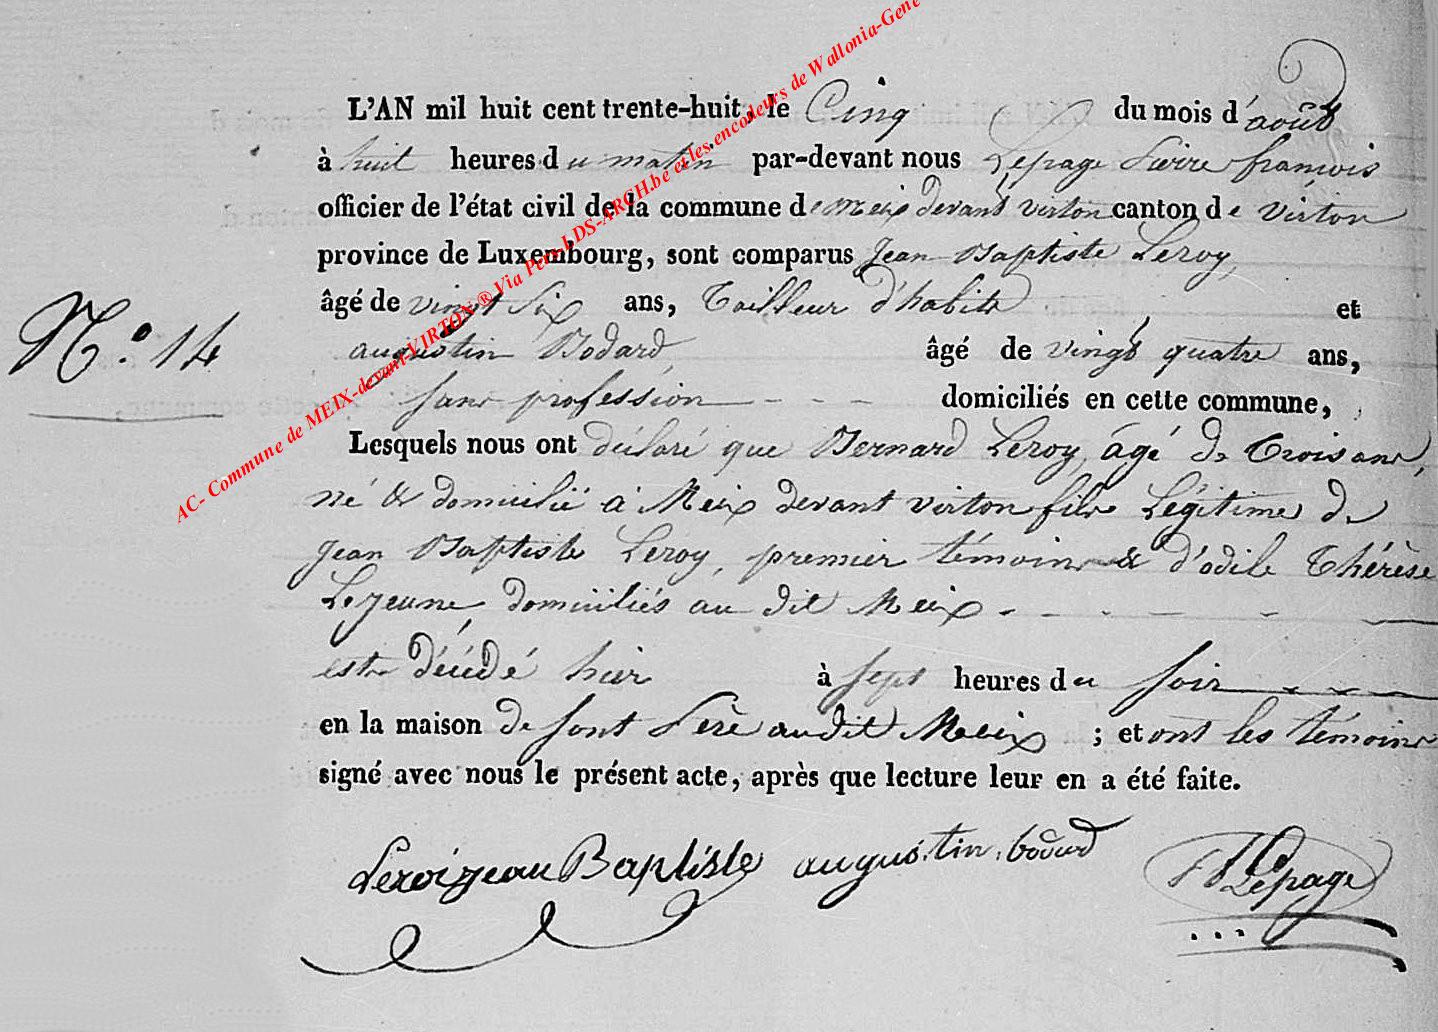 L'AN mil huit cent trente-huit, le Cinq du mois d'août
à huit heures du matin par-devant nous Lepage Pierre françois
officier de l'état civil de la commune de Meix devant virton canton de virton
province de Luxembourg, sont comparus Jean Baptiste Leroy,
âgé de vingt Six ans, Tailleur d'habits et
N.º 14
augustin Bodard âgé de vingt quatre ans,
sans profession - - - domiciliés en cette commune,
Lesquels nous ont déclaré que Bernard Leroy, âgé de Trois ans,
né & domicilié à Meix devant virton fils Légitime de
Jean Baptiste Leroy, premier témoin & d'odile Thérèse
Lejeune, domiciliés au dit Meix - - - -
est décédé hier à sept heures du soir
en la maison de sont Père au dit Meix ; et ont les témoins
signé avec nous le présent acte, après que lecture leur en a été faite.
Leroi jean Baptiste augustin bodard Lepage
AC- Commune de MEIX-devant-VIRTON ® Via Pere-LDS-ARCH.be et les encodeurs de Wallonia-Gene